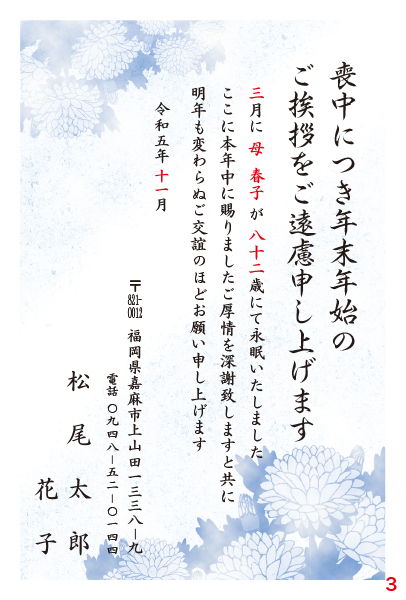 喪中につき年末年始の
ご挨拶をご遠慮申し上げます
三月に 母 春子 が 八十二歳にて永眠いたしました
ここに本年中に賜りましたご厚情を深謝致しますと共に
明年も変わらぬご交誼のほどお願い申し上げます
令和五年十一月
〒821-0012 福岡県嘉麻市上山田一三三八ー九
電話 〇九四八ー五二ー〇一四四
松尾太郎
花子
3